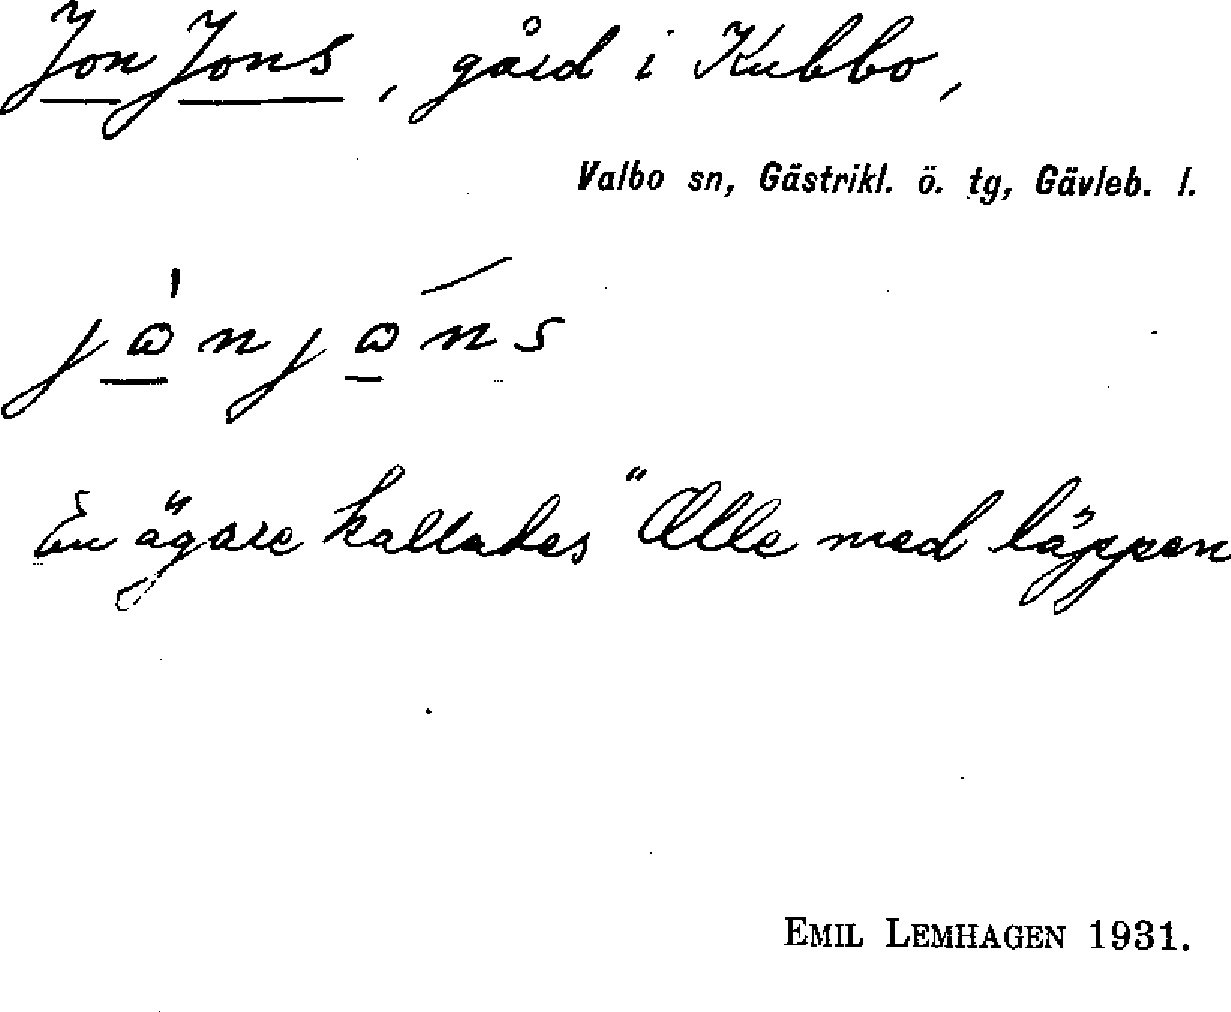 Jon Jons, gård i Kubbo,
Valbo sn, Gästrikl. ö. tg, Gävleb. l.
En ägare kallades "Olle med läppen
EMIL LEMHAGEN 1931.